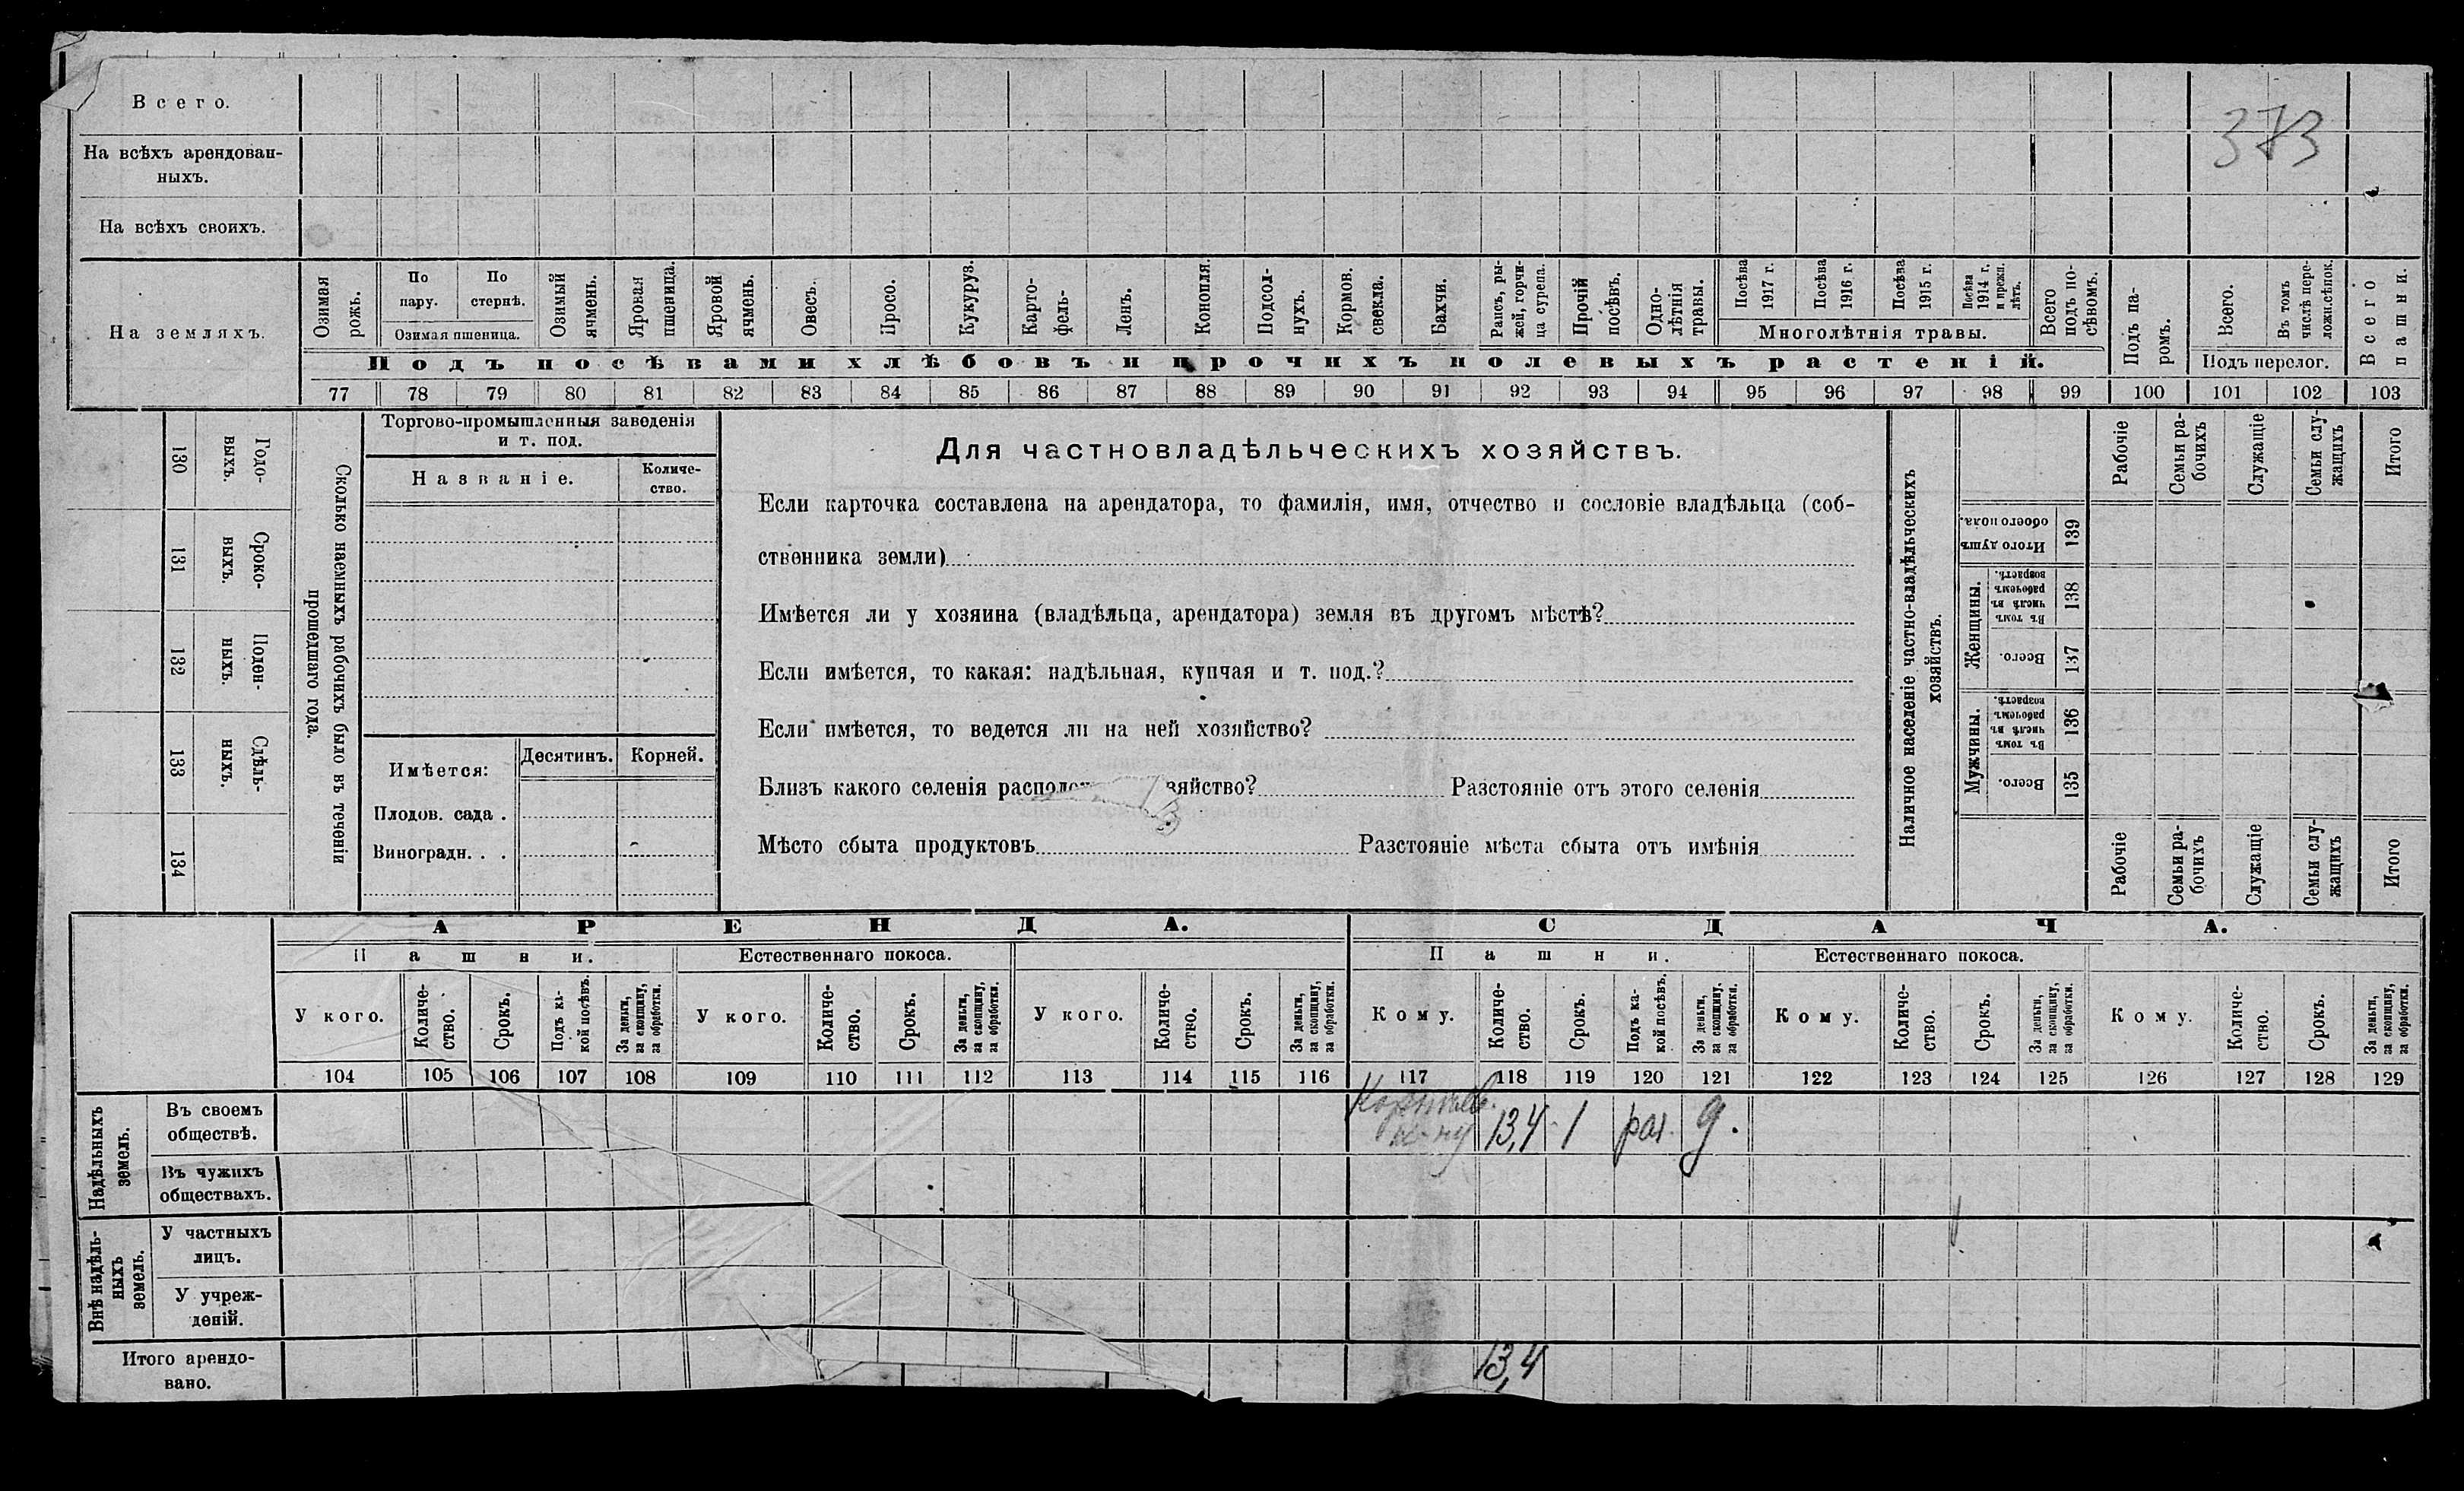 Всего.
373
На всѣхъ арендован-
ныхъ.
На всѣхъ своихъ.
На земляхъ.
Озимая рожь.
По пару.
По стернѣ.
Озимая пшеница.
Озимый ячмень.
Яровая пшеница.
Яровой ячмень.
Овесъ.
Просо.
Кукуруз.
Карто-
фель.
Ленъ.
Конопля.
Подсол-
нухъ.
Кормов. свекла.
Бахчи.
Рапсъ, ры-
жей, горчи-
ца сурепа.
Прочій посѣвъ.
Одно-
лѣтнія травы.
Посѣва 1917 г.
Посѣва 1916 г.
Посѣва 1915 г.
Посѣва 1914 г. и прежн. лѣтъ.
Многолѣтнія травы.
Всего подъ по-
сѣвомъ.
Подъ па-
ромъ.
Всего.
Въ томъ числѣ пере-
ложн.сѣнок.
Подъ перелог.
Всего пашни.
Подъ посѣвами хлѣбовъ и прочихъ полевыхъ растеній.
77 78 79 80 81 82 83 84 85 86 87 88 89 90 91 92 93 94 95 96 97 98 99 100 101 102 103
130 Годо-
выхъ.
131 Сроко-
выхъ.
132 Поден-
ныхъ.
133 Сдѣль-
ныхъ.
134
Сколько наемныхъ рабочихъ было въ теченіи
прошедшаго года.
Торгово-промышленныя заведенія
и т. под.
Названіе.
Количе-
ство.
Имѣется:
Десятинъ.
Корней.
Плодов. сада .
Виноградн. . .
Для частновладѣльческихъ хозяйствъ.
Если карточка составлена на арендатора, то фамилія, имя, отчество и сословіе владѣльца (соб-
ственника земли)
Имѣется ли у хозяина (владѣльца, арендатора) земля въ другомъ мѣстѣ?
Если имѣется, то какая: надѣльная, купчая и т. под.?
Если имѣется, то ведется ли на ней хозяйство?
Близъ какого селенія располож зяйство? Разстояніе отъ этого селенія
Мѣсто сбыта продуктовъ Разстояніе мѣста сбыта отъ имѣнія
Наличное населеніе частно-владѣльческихъ
хозяйствъ.
Рабочіе
Семьи ра-
бочихъ
Служащіе
Семьи слу-
жащихъ
Итого
Итого душъ обоего пола. 139
Женщины.
Въ томъ числѣ въ рабочемъ возрастѣ. 138
Всего. 137
Мужчины.
Въ томъ числѣ въ рабочемъ возрастѣ. 136
Всего. 135
Рабочіе
Семьи ра-
бочихъ
Служащіе
Семьи слу-
жащихъ
Итого
АРЕНДА.
СДАЧА.
Пашни.
Естественнаго покоса.
Пашни.
Естественнаго покоса.
У кого.
Количе-
ство.
Срокъ.
Подъ ка-
кой посѣвъ.
За деньги,
за скопщину,
за обработки.
У кого.
Количе-
ство.
Срокъ.
За деньги,
за скопщину,
за обработки.
У кого.
Количе-
ство.
Срокъ.
За деньги,
за скопщину,
за обработки.
Кому.
Количе-
ство.
Срокъ.
Подъ ка-
кой посѣвъ.
За деньги,
за скопщину,
за обработки.
Кому.
Количе-
ство.
Срокъ.
За деньги,
за скопщину,
за обработки.
Кому.
Количе-
ство.
Срокъ.
За деньги,
за скопщину,
за обработки.
104 105 106 107 108 109 110 111 112 113 114 115 116 117 118 119 120 121 122 123 124 125 126 127 128 129
Надѣльныхъ
земель.
Въ своемъ
обществѣ.
13,4 1 раз. д.
Въ чужихъ
обществахъ.
Внѣ надѣль-
ныхъ
земель.
У частныхъ
лицъ.
У учреж-
деній.
Итого арендо-
вано.
13,4